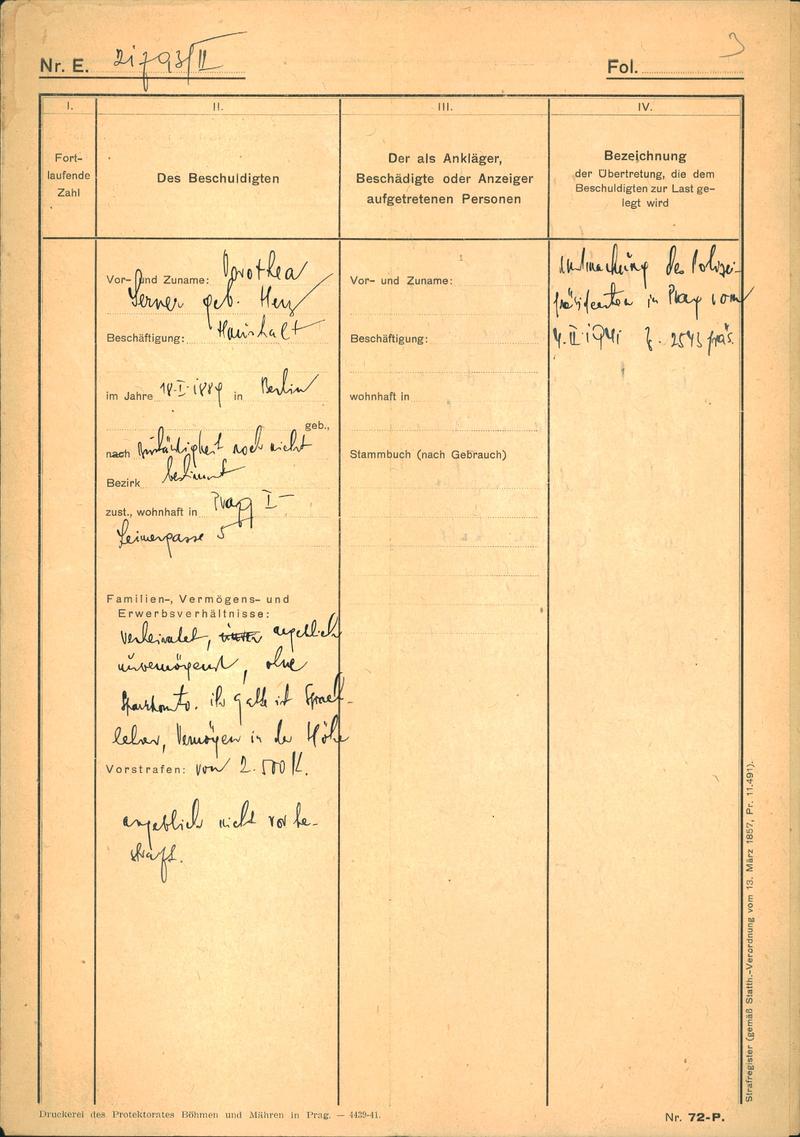 Nr. E. 21793/II
Fol. 3
I.
II.
III.
IV.
Fort-
laufende
Zahl
Des Beschuldigten
Der als Ankläger,
Beschädigte oder Anzeiger
aufgetretenen Personen
Bezeichnung
der Übertretung, die dem
Beschuldigten zur Last ge-
legt wird
Vor- und Zuname: Dorothea
Lerner geb. Herz
Beschäftigung: Haushalt
im Jahre 18.I.1889 in Berlin
geb.,
nach Zuständigkeit noch nicht
Bezirk bestimmt
zust., wohnhaft in Prag I-
Leimergasse 5
Familien-, Vermögens- und
Erwerbsverhältnisse:
verheiratet, angeblich
unvermögend, ohne
ist
Vermögen in der Höhe
Vorstrafen: von 2.500 K.
angeblich nicht vorbe-
straft.
Vor- und Zuname:
Beschäftigung:
wohnhaft in
Stammbuch (nach Gebrauch)
des Polizei-
präsidenten in Prag vom
4.II.1941 Z. 2545 präs.
Strafregister (gemäß Statth.-Verordnung vom 13. März 1857, Pr. 11.491).
Druckerei des Protektorates Böhmen und Mähren in Prag. — 4439-41.
Nr. 72-P.